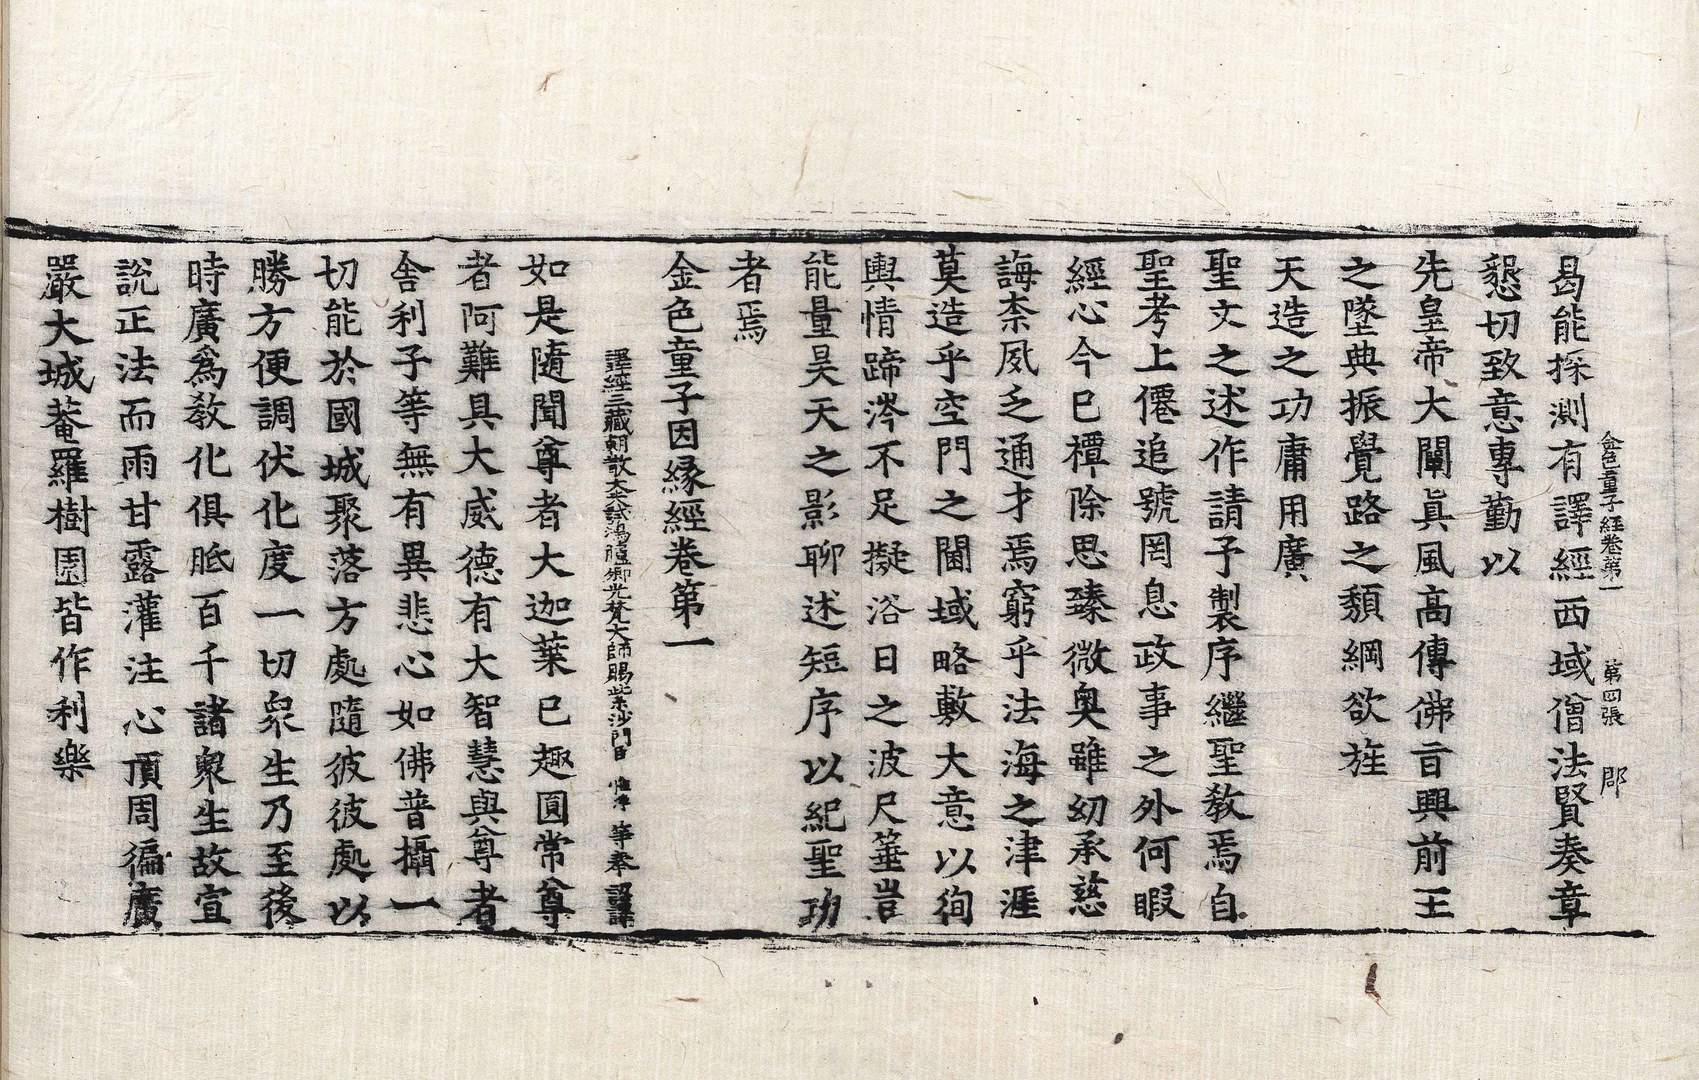 金色童子經卷第一 第四張 郡
曷能探測有譯經西域僧法賢奏章
懇切致意專勤以
先皇帝大闡眞風高傳佛旨興前王
之墜典振覺路之頹綱欲旌
天造之功庸用廣
聖文之述作請予製序繼聖敎焉自
聖考上僊追號罔息政事之外何暇
經心今已禫除思臻微奥雖幼承慈
誨柰夙乏通才焉窮乎法海之津涯
莫造乎空門之閫域略敷大意以徇
輿情蹄涔不足擬浴日之波尺箠豈
能量昊天之影聊述短序以紀聖功
者焉
金色童子因緣經卷第一
譯經三藏朝散大夫試鴻臚卿光梵大師賜紫沙門臣 惟淨 等奉 詔譯
如是隨聞尊者大迦葉已趣圓常尊
者阿難具大威德有大智慧與尊者
舍利子等無有異悲心如佛普攝一
切能於國城聚落方處隨彼彼處以
勝方便調伏化度一切衆生乃至後
時廣爲敎化俱胝百千諸衆生故宣
說正法而雨甘露灌注心頂周徧廣
嚴大城菴羅樹園皆作利樂